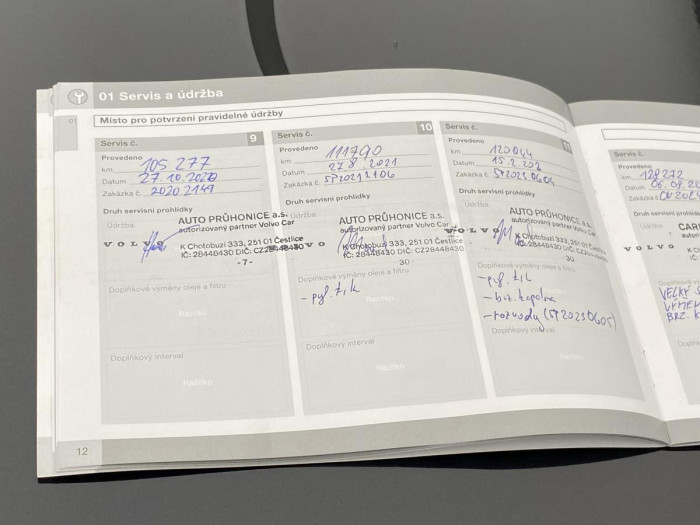 01 Servis a údržba
01
Místo pro potvrzení pravidelné údržby
Servis č. 9
Provedeno
km 105 277
Datum 27.10.2020
Zakázka č. 2020 2149
Druh servisní prohlídky
Údržba
AUTO PRŮHONICE a.s.
autorizovaný partner Volvo Car
VOLVO
K Chotobuzi 333, 251 01 Čestlice
IČ: 28448430 DIČ: CZ28448430
-7-
Doplňkové výměny oleje a filtru
Razítko
Doplňkový interval
Razítko
Servis č. 10
Provedeno
km 111790
Datum 27.8.2021
Zakázka č. SP20212106
Druh servisní prohlídky
Údržba
AUTO PRŮHONICE a.s.
autorizovaný partner Volvo Car
K Chotobuzi 333, 251 01 Čestlice
IČ: 28448430 DIČ: CZ28448430
30
Doplňkové výměny oleje a filtru
- pyl. filtr
Doplňkový interval
Razítko
Servis č. 11
Provedeno
km
Datum 15.2.202
Zakázka č. SP20230604
Druh servisní prohlídky
Údržba
AUTO PRŮHONICE a.s.
autorizovaný partner Volvo Car
VOLVO
K Chotobuzi 333, 251 01 Čestlice
IČ: 28448430 DIČ: CZ28448430
30
- brz. kapalina
- rozvody (SP20230605)
Doplňkový interval
Razítko
Servis č.
Provedeno
km 128272
Datum 06.09.20
Zakázka č.
Druh servisní prohlídky
Údržba
VOLVO
Doplňkové
VELKÝ S
BRZ. K
12